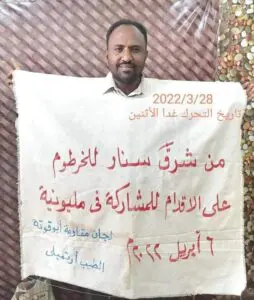 2022/3/28
تاريخ التحرك غدا الأثنين
من شرق سنار للخرطوم
على الاقدام للمشاركة فى مليونية
٦ أبريل ٢٠٢٢م
لجان مقاومة أبوقوتة
الطيب